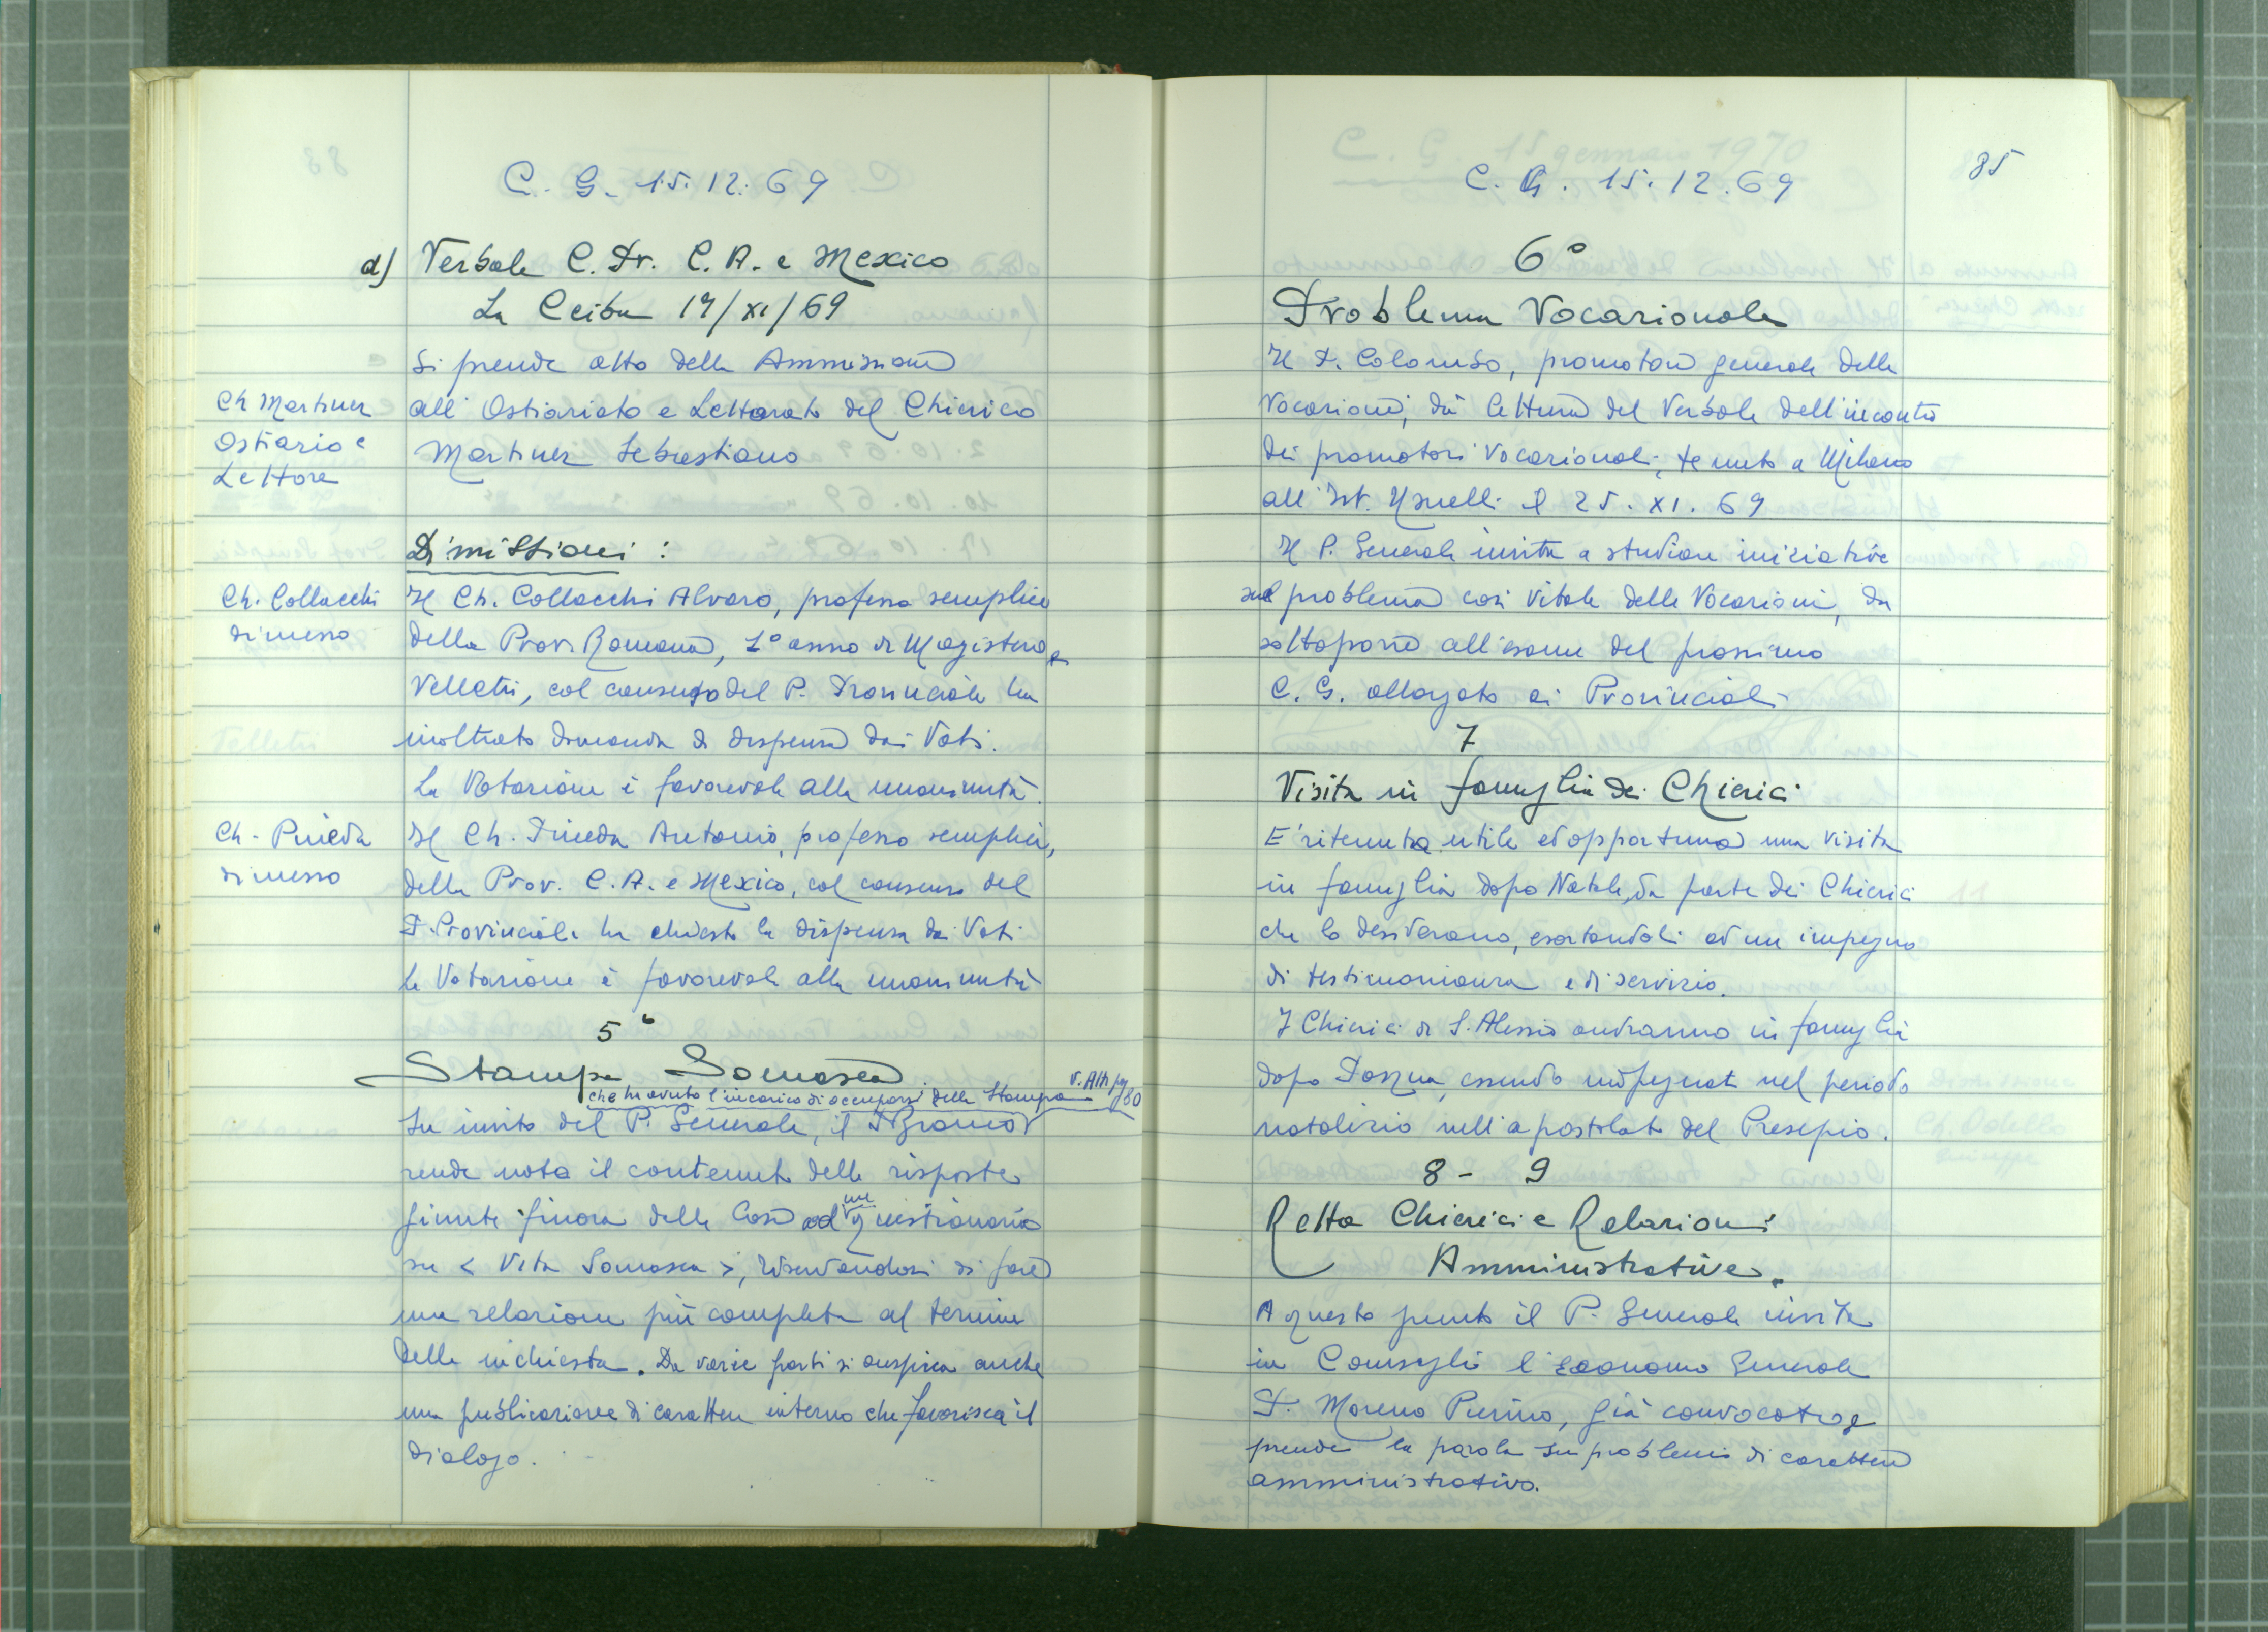 C. G. 15.12.69
d) Verbale C. Pr. C. A. e Mexico
La Ceiba 17/XI/69
Si prende atto della Ammissione
Ch Martinez
Ostiario e
Lettore
all'Ostiariato e Lettorato del Chierico
Martinez Sebastiano
Dimissioni :
Ch. Collacchi
dimesso
Il Ch. Collacchi Alvaro, professo semplice
della Prov. Romana, 1° anno di Magistero a
Velletri, col consenso del P. Provinciale ha
inoltrato domanda di dispensa dai Voti.
La Votazione è favorevole alla unanimità.
Ch. Pineda
dimesso
Il Ch. Pineda Antonio, professo semplice,
della Prov. C. A. e Mexico, col consenso del
P. Provinciale ha chiesto la dispensa dai Voti
La Votazione è favorevole alla unanimità
5°
Stampa Somasca
che ha avuto l'incarico di occuparsi della Stampa v. Atti pg 80
Su invito del P. Generale, il P. Bianco
rende nota il contenuto delle risposte
giunte finora delle Case ad un questionario
su < Vita Somasca >, riservandosi di fare
una relazione più completa al termine
della inchiesta. Da varie parti si auspica anche
una pubblicazione di carattere interno che favorisca il
dialogo.
85
C. G. 15.12.69
6°
Problema Vocazionale
Il P. Colombo, promotore generale delle
Vocazioni, dà lettura del Verbale dell'incontro
dei promotori Vocazionali, tenuto a Milano
all'Ist. Usuelli il 25.XI.69
Il P. Generale invita a studiare iniziative
sul problema così vitale delle Vocazioni, da
sottoporre all'esame del prossimo
C. G. allargato ai Provinciali
7
Visita in famiglia dei Chierici
E' ritenuta utile ed opportuna una visita
in famiglia dopo Natale, da parte dei Chierici
che lo desiderano, esortandoli ad un impegno
di testimonianza e di servizio.
I Chierici di S. Alessio andranno in famiglia
dopo Pasqua, essendo impegnati nel periodo
natalizio nell'apostolato del Presepio.
8 - 9
Retta Chierici e Relazioni
Amministrative.
A questo punto il P. Generale invita
in Consiglio l'Economo Generale
P. Moreno Pierino, già convocato, e
prende la parola su problemi di carattere
amministrativo.